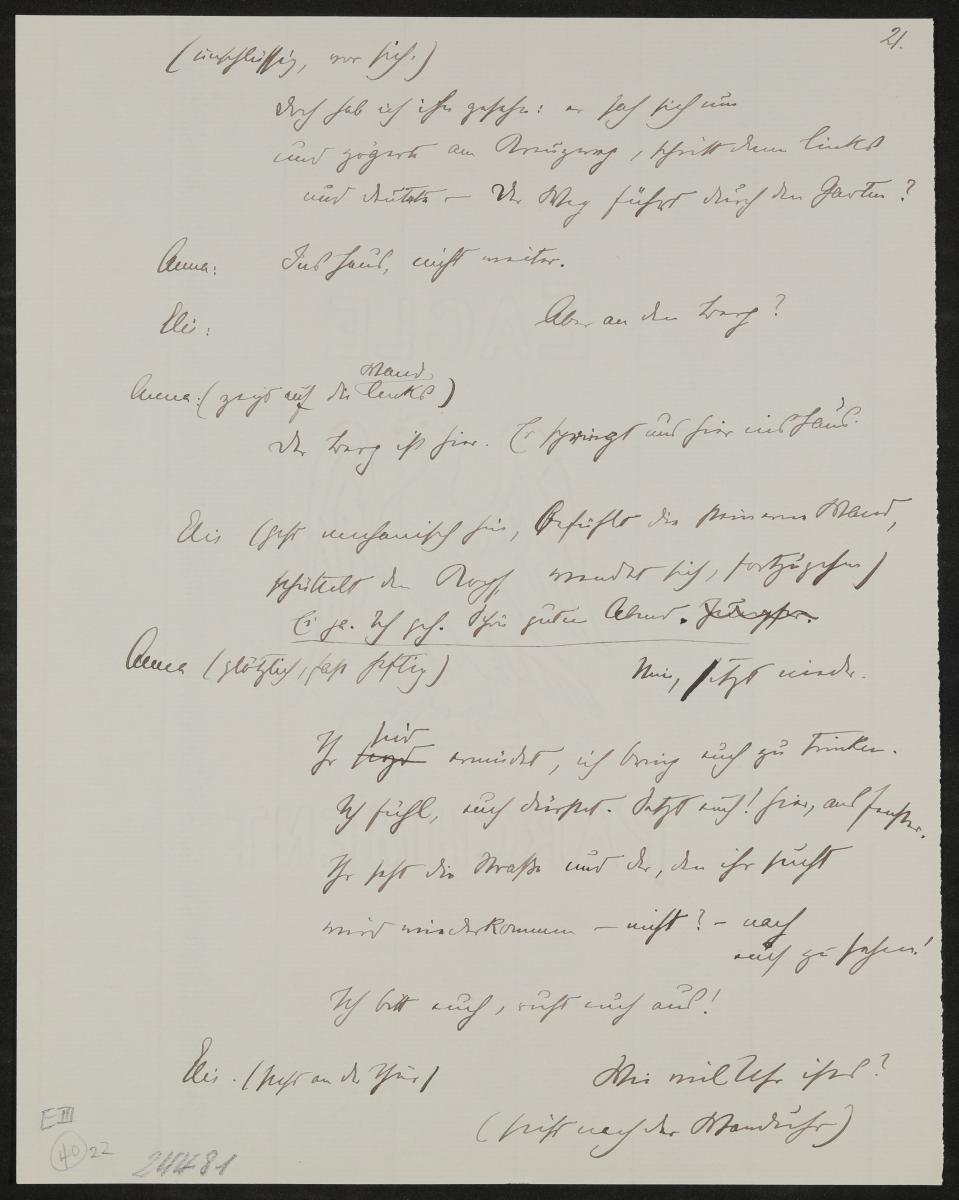 21.
(unschlüssig, vor sich.)
Doch hab ich ihn gesehen: er sah sich um
und zögerte am Kreuzweg, schritt dann links
und deutete – Der Weg führt durch den Garten?
Anna: Ins Haus, nicht weiter.
Elis: Aber an den Berg?
Wand
Anna: (zeigt auf die links)
Der Berg ist hier. Er springt uns hier ins Haus.
Elis (geht mechanisch hin, befühlt die steinerne Wand,
schüttelt den Kopf, wendet sich, fortzugehen)
Ei ja. Ich geh. Schön guten Abend. Jungfer.
Anna (plötzlich, fast heftig) Nein, sitzt nieder.
seid
Ihr seyd ermüdet, ich bring euch zu trinken.
Ich fühl, euch dürstet. Setzt euch! hier, ans Fenster.
Ihr seht die Straße und der, den ihr sucht
wird wiederkommen – nicht? – nach
euch zu sehen!
Ich bitt euch, ruht euch aus!
Elis. (steht an der Thür) Wie viel Uhr ists?
(sieht nach der Wanduhr)
E III
40 22
24481